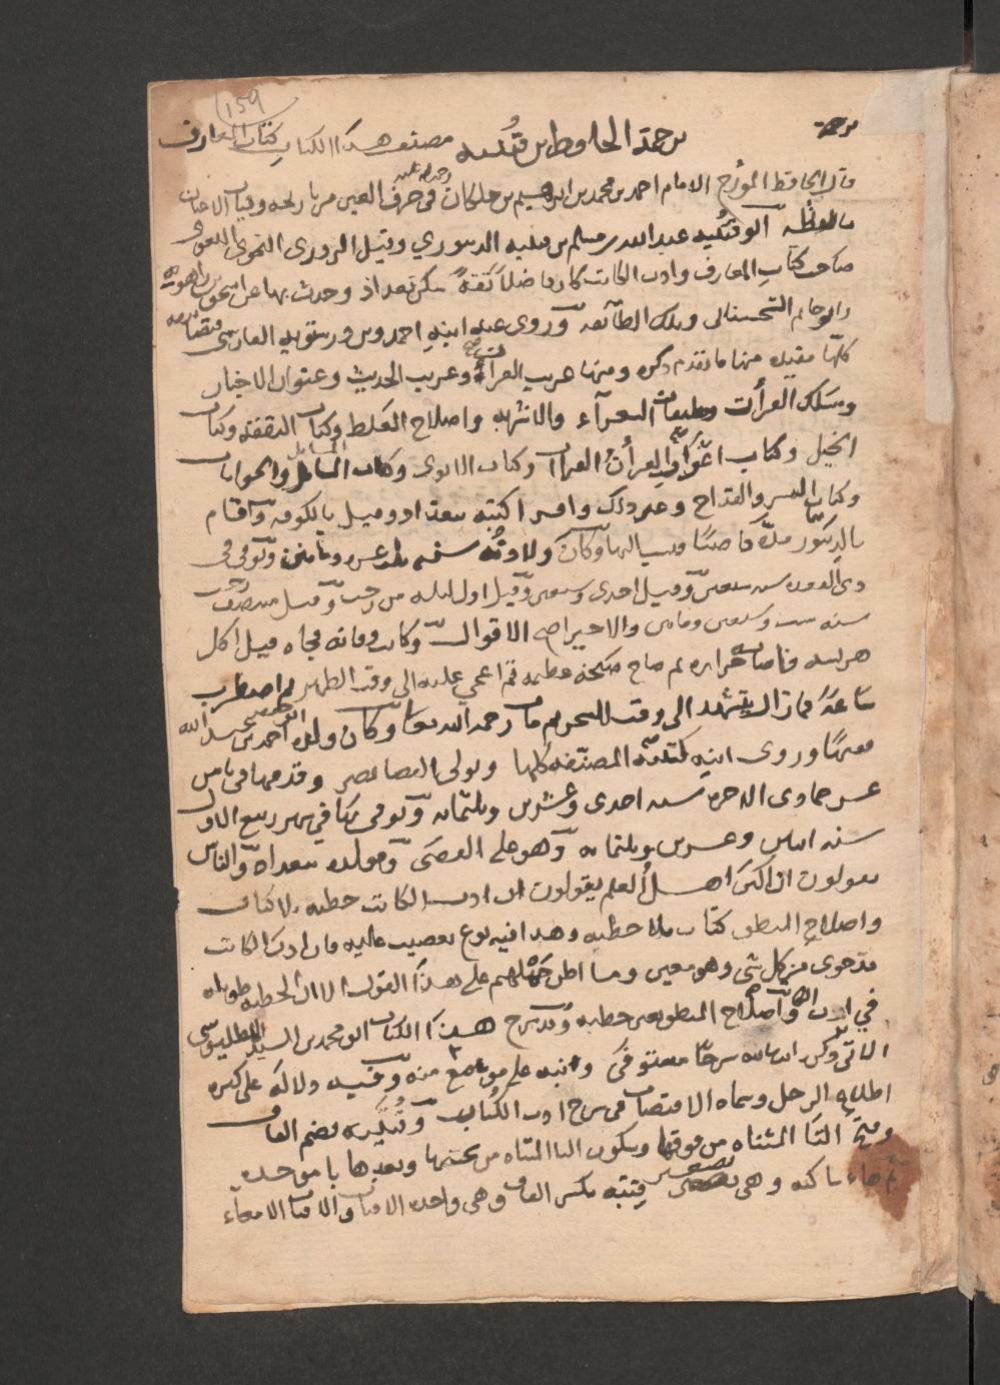 159
ترجمة
ترجمة الحافظ بن قتيبه مصنف هذا الكتاب كتاب المعارف
قال الحافظ المؤرخ الامام احمد بن محمد بن ابراهيم بن خلكان رحمه الله في حرف العين من تاريخه وفيات الاعيان
ما لفظه ابو قتيبه عبد الله بن مسلم بن قتيبه الدينوري وقيل المروزي النحوي اللغوي
صاحب كتاب المعارف وادب الكاتب كان فاضلا ثقة سكن بغداد وحدث بها عن اسحق بن راهويه
وابو حاتم السجستاني وتلك الطبقه وروى عنه ابنه احمد وبن درستويه الفارسي وتصانيفه
كلها مفيده منها ما تقدم ذكره ومنها غريب القرآن وغريب الحديث وعيون الاخبار
ومشكل القرأن وطبقات الشعرآء والاشربه واصلاح الغلط وكتاب التفقه وكتاب
الخيل وكتاب اعراب القرأن وكتاب الانوا وكتاب المسائل والجوابات
وكتاب الميسر والقداح وغير ذلك واقرا كتبه ببغداد وقيل بالكوفه وآقام
بالدينور مدة قاضيا فنسب اليها وكان ولادته سنه ثلث عشر ومأتين وتوفي في
ذي القعده سنه سبعين وقيل احدى وسبعين وقيل اول ليله من رجب وقيل منتصف رجب
سنه ست وسبعين ومأتين والاخير اصح الاقوال وكانت وفاته فجاه قيل اكل
هريسه فاصاب حراره ثم صاح صيحه عظيمه ثم اغمي عليه الى وقت الظهر ثم اضطرب
ساعة فما زال يتشهد الى وقت السحر ثم مات رحمه الله تعا وكان ولده احمد بن عبد الله
فقيها وروى ابيه كتبه المصنفه كلها وتولى القضا بمصر وقدمها في ثامن
عشر جمادى الاخره سنه احدى وعشرين وثلثمائه وتوفي بها في شهر ربيع الاول
سنه اثنين وعشرين وثلثمائه وهو على القضى ومولده ببغداد والناس
يقولون ان اكثر اهل العلم يقولون ان ادب الكاتب خطبه بلا كتاب
واصلاح المنطق كتاب بلا خطبه وهذا فيه نوع تعصب عليه فان ادب الكاتب
قد حوى من كل شى وهو مفنن وما اظن حملهم على هذا القول الا ان الخطبه طويله
في ادب الكاتب واصلاح المنطق بغير خطبه وقد شرح هذا الكتاب ابو محمد بن السيد البطليوسي
الاتي ذكره ان شا الله شرحا مستوفى ونبه على مواضع منه وفيه دلاله على كثره
اطلاع الرجل وسماه الاقتضاب في شرح ادب الكتاب وقتيبه بضم القاف
وفتح التا المثناه من فوقها وسكون اليا المثناه من تحتها وبعدها با موحده
ثم هاء ساكنه وهي تصغير قتبه بكسر القاف وهي واحده الاقتاب والاقتاب الامعاء